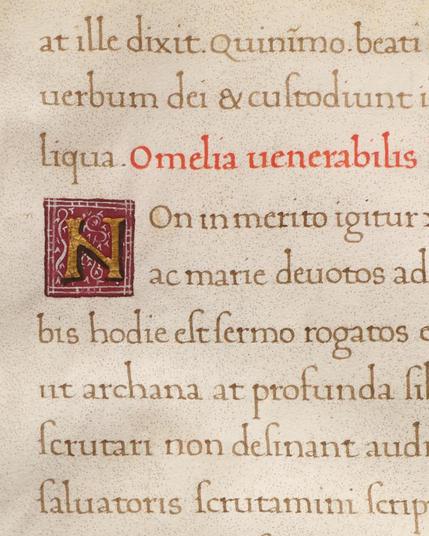 at ille dixit. Quinim̃o. beati
uerbum dei & custodiunt
liqua. Omelia uenerabilis
NOn inmerito igitur
ac marie deuotos ad
bis hodie est sermo rogatos
ut archana at profunda
scrutari non desinant
saluatoris scrutamini